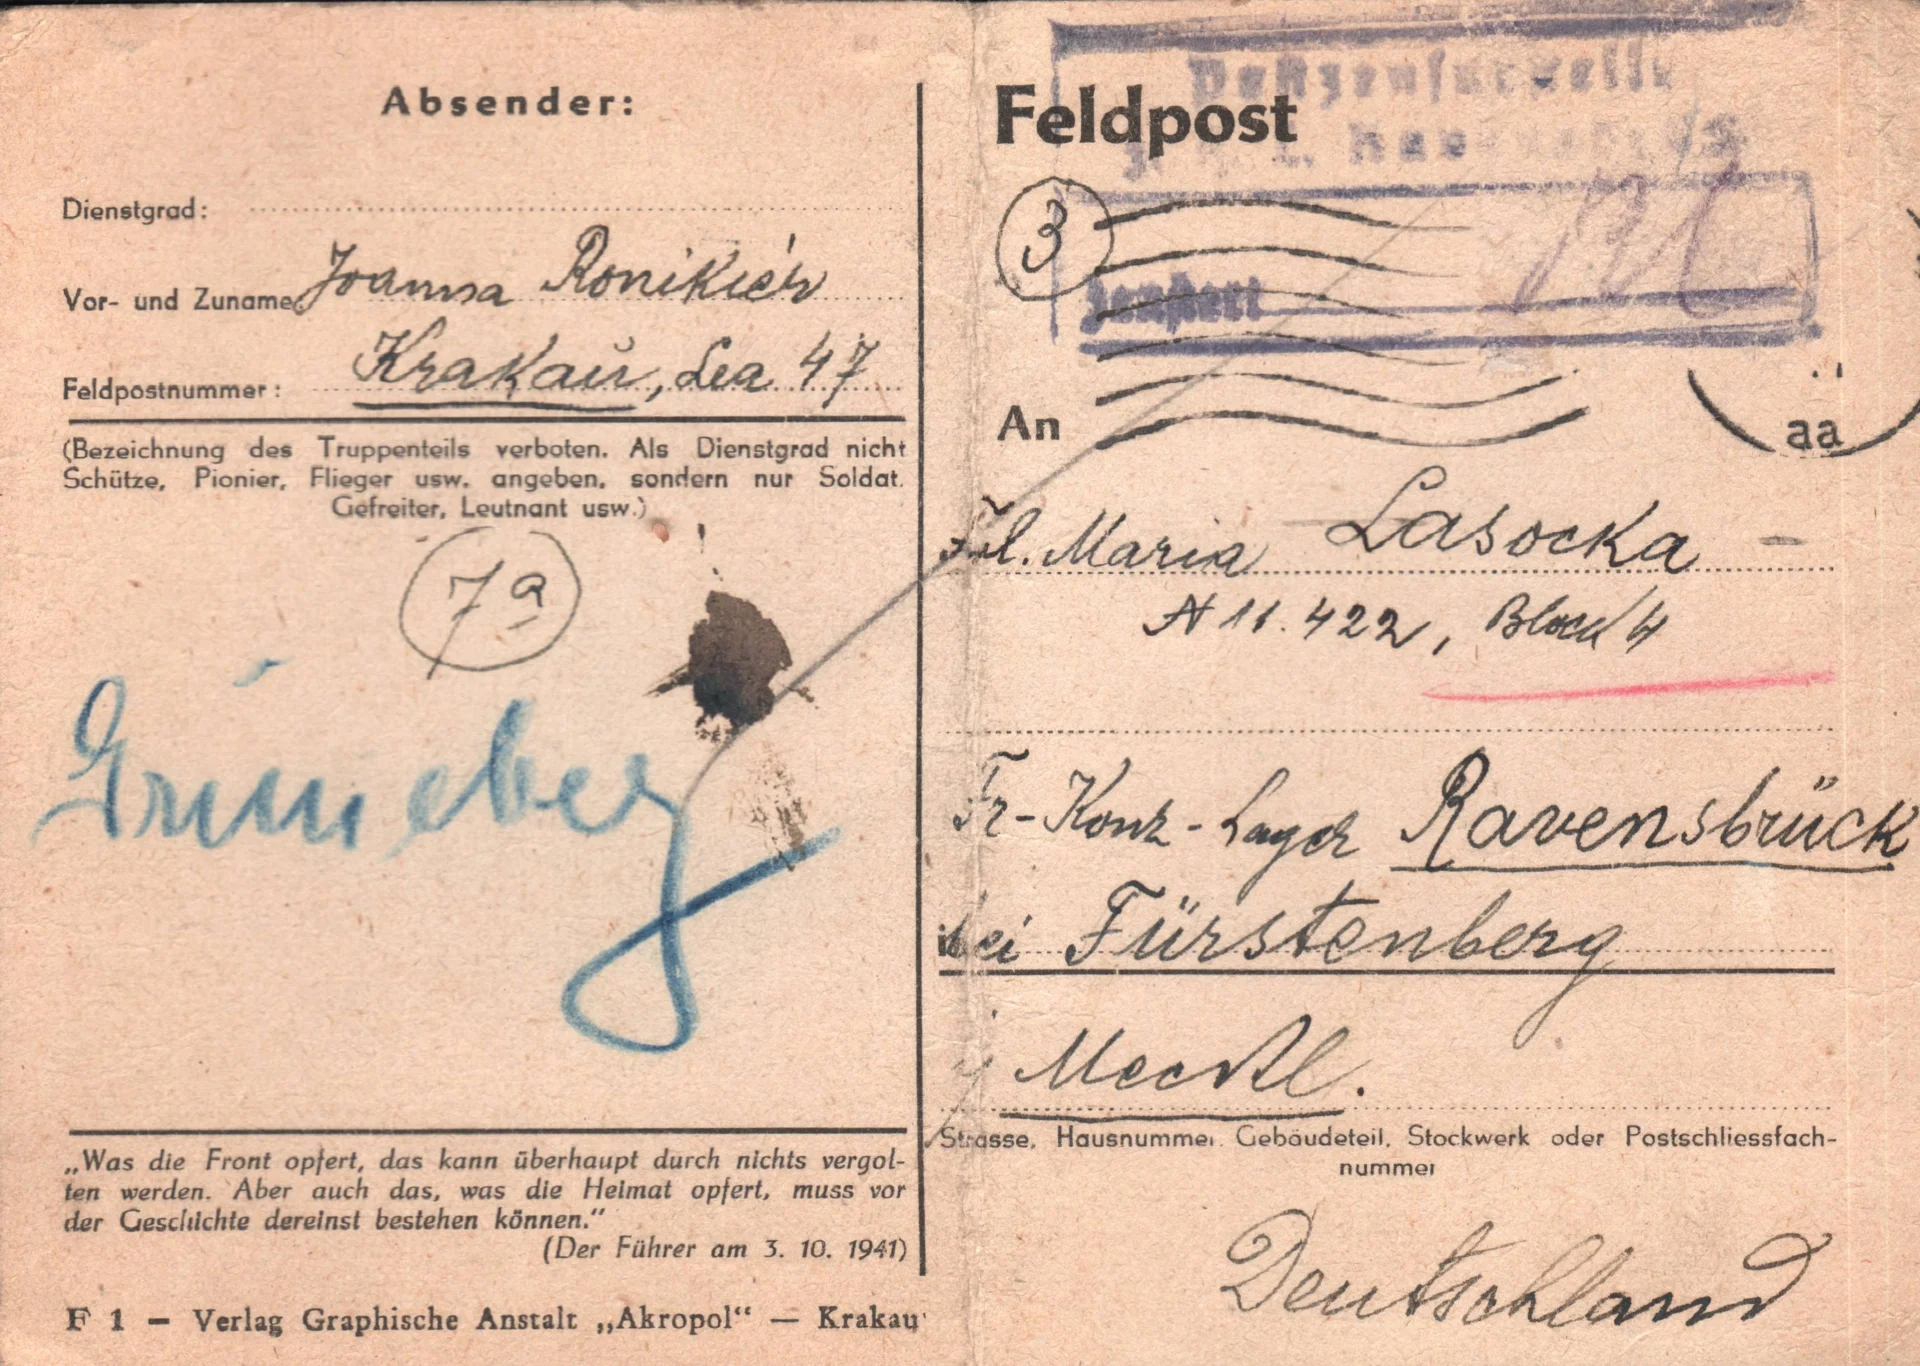 Absender:
Dienstgrad:
Vor- und Zuname Joanna Ronikier
Feldpostnummer: Krakau, Lea 47
(Bezeichnung des Truppenteils verboten. Als Dienstgrad nicht
Schütze, Pionier, Flieger usw. angeben, sondern nur Soldat.
Gefreiter, Leutnant usw.)
7a
Grüneberg
„Was die Front opfert, das kann überhaupt durch nichts vergol-
ten werden. Aber auch das, was die Heimat opfert, muss vor
der Geschichte dereinst bestehen können.“
(Der Führer am 3. 10. 1941)
F 1 — Verlag Graphische Anstalt „Akropol“ — Krakau
Feldpost
3
Zensiert
aa
An
Frl. Maria Lasocka -
N 11.422, Block 4
Fr-Konz-Lager Ravensbrück
bei Fürstenberg
Meckl.
Strasse, Hausnummer, Gebäudeteil, Stockwerk oder Postschliessfach-
nummer
Deutschland